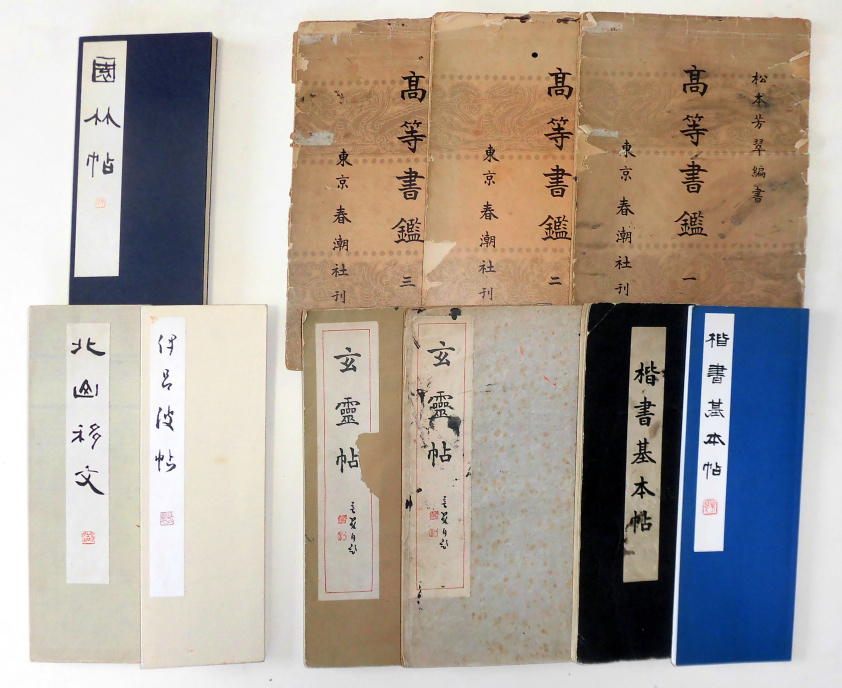 園林帖
高等書鑑
東京 春潮社刊
三
高等書鑑
東京 春潮社刊
二
松本芳翠編書
高等書鑑
東京 春潮社刊
一
北山移文
伊呂波帖
玄靈帖
玄靈帖
楷書基本帖
楷書基本帖